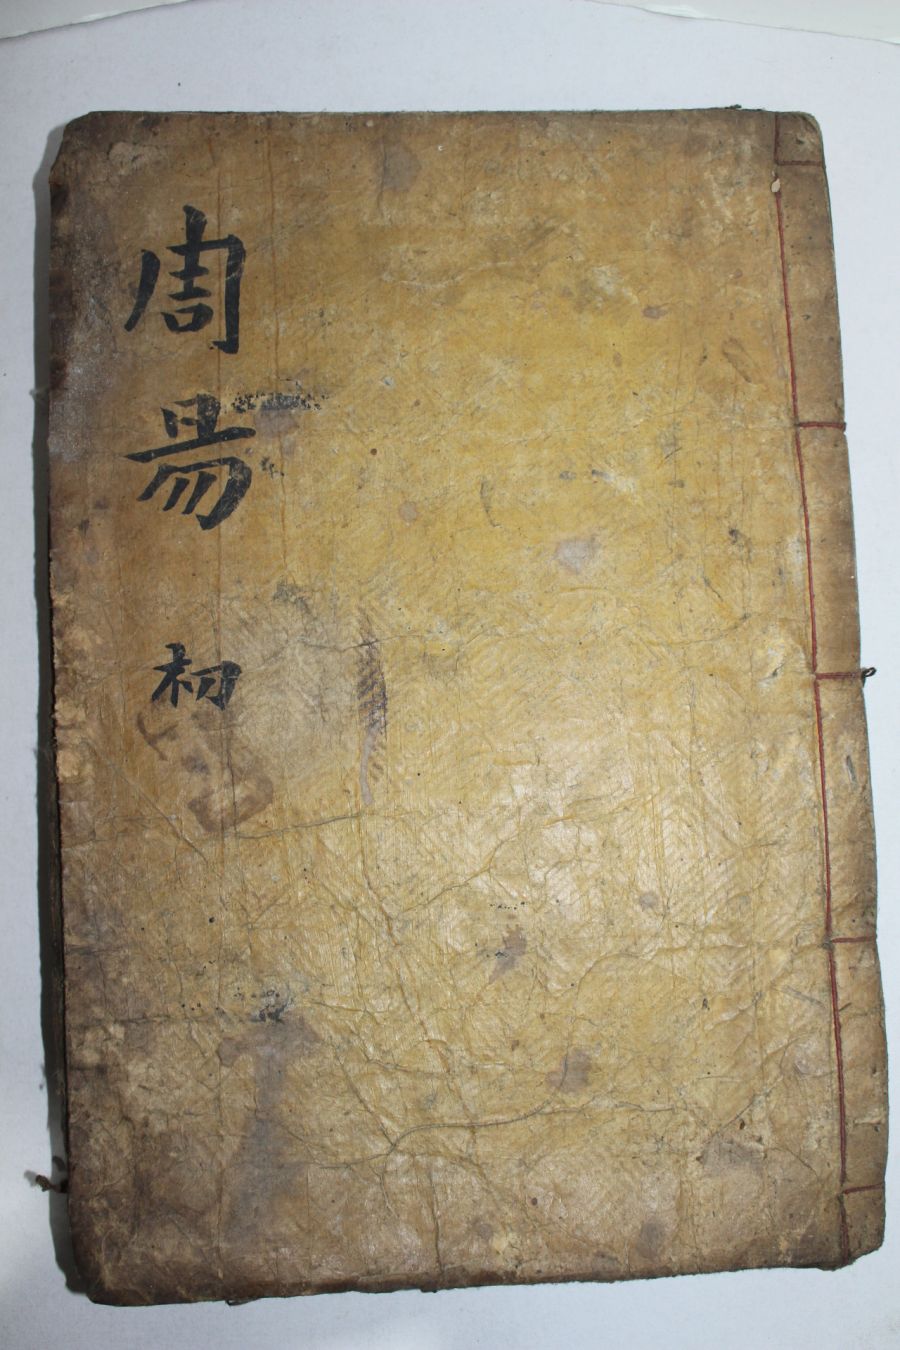 周易
初